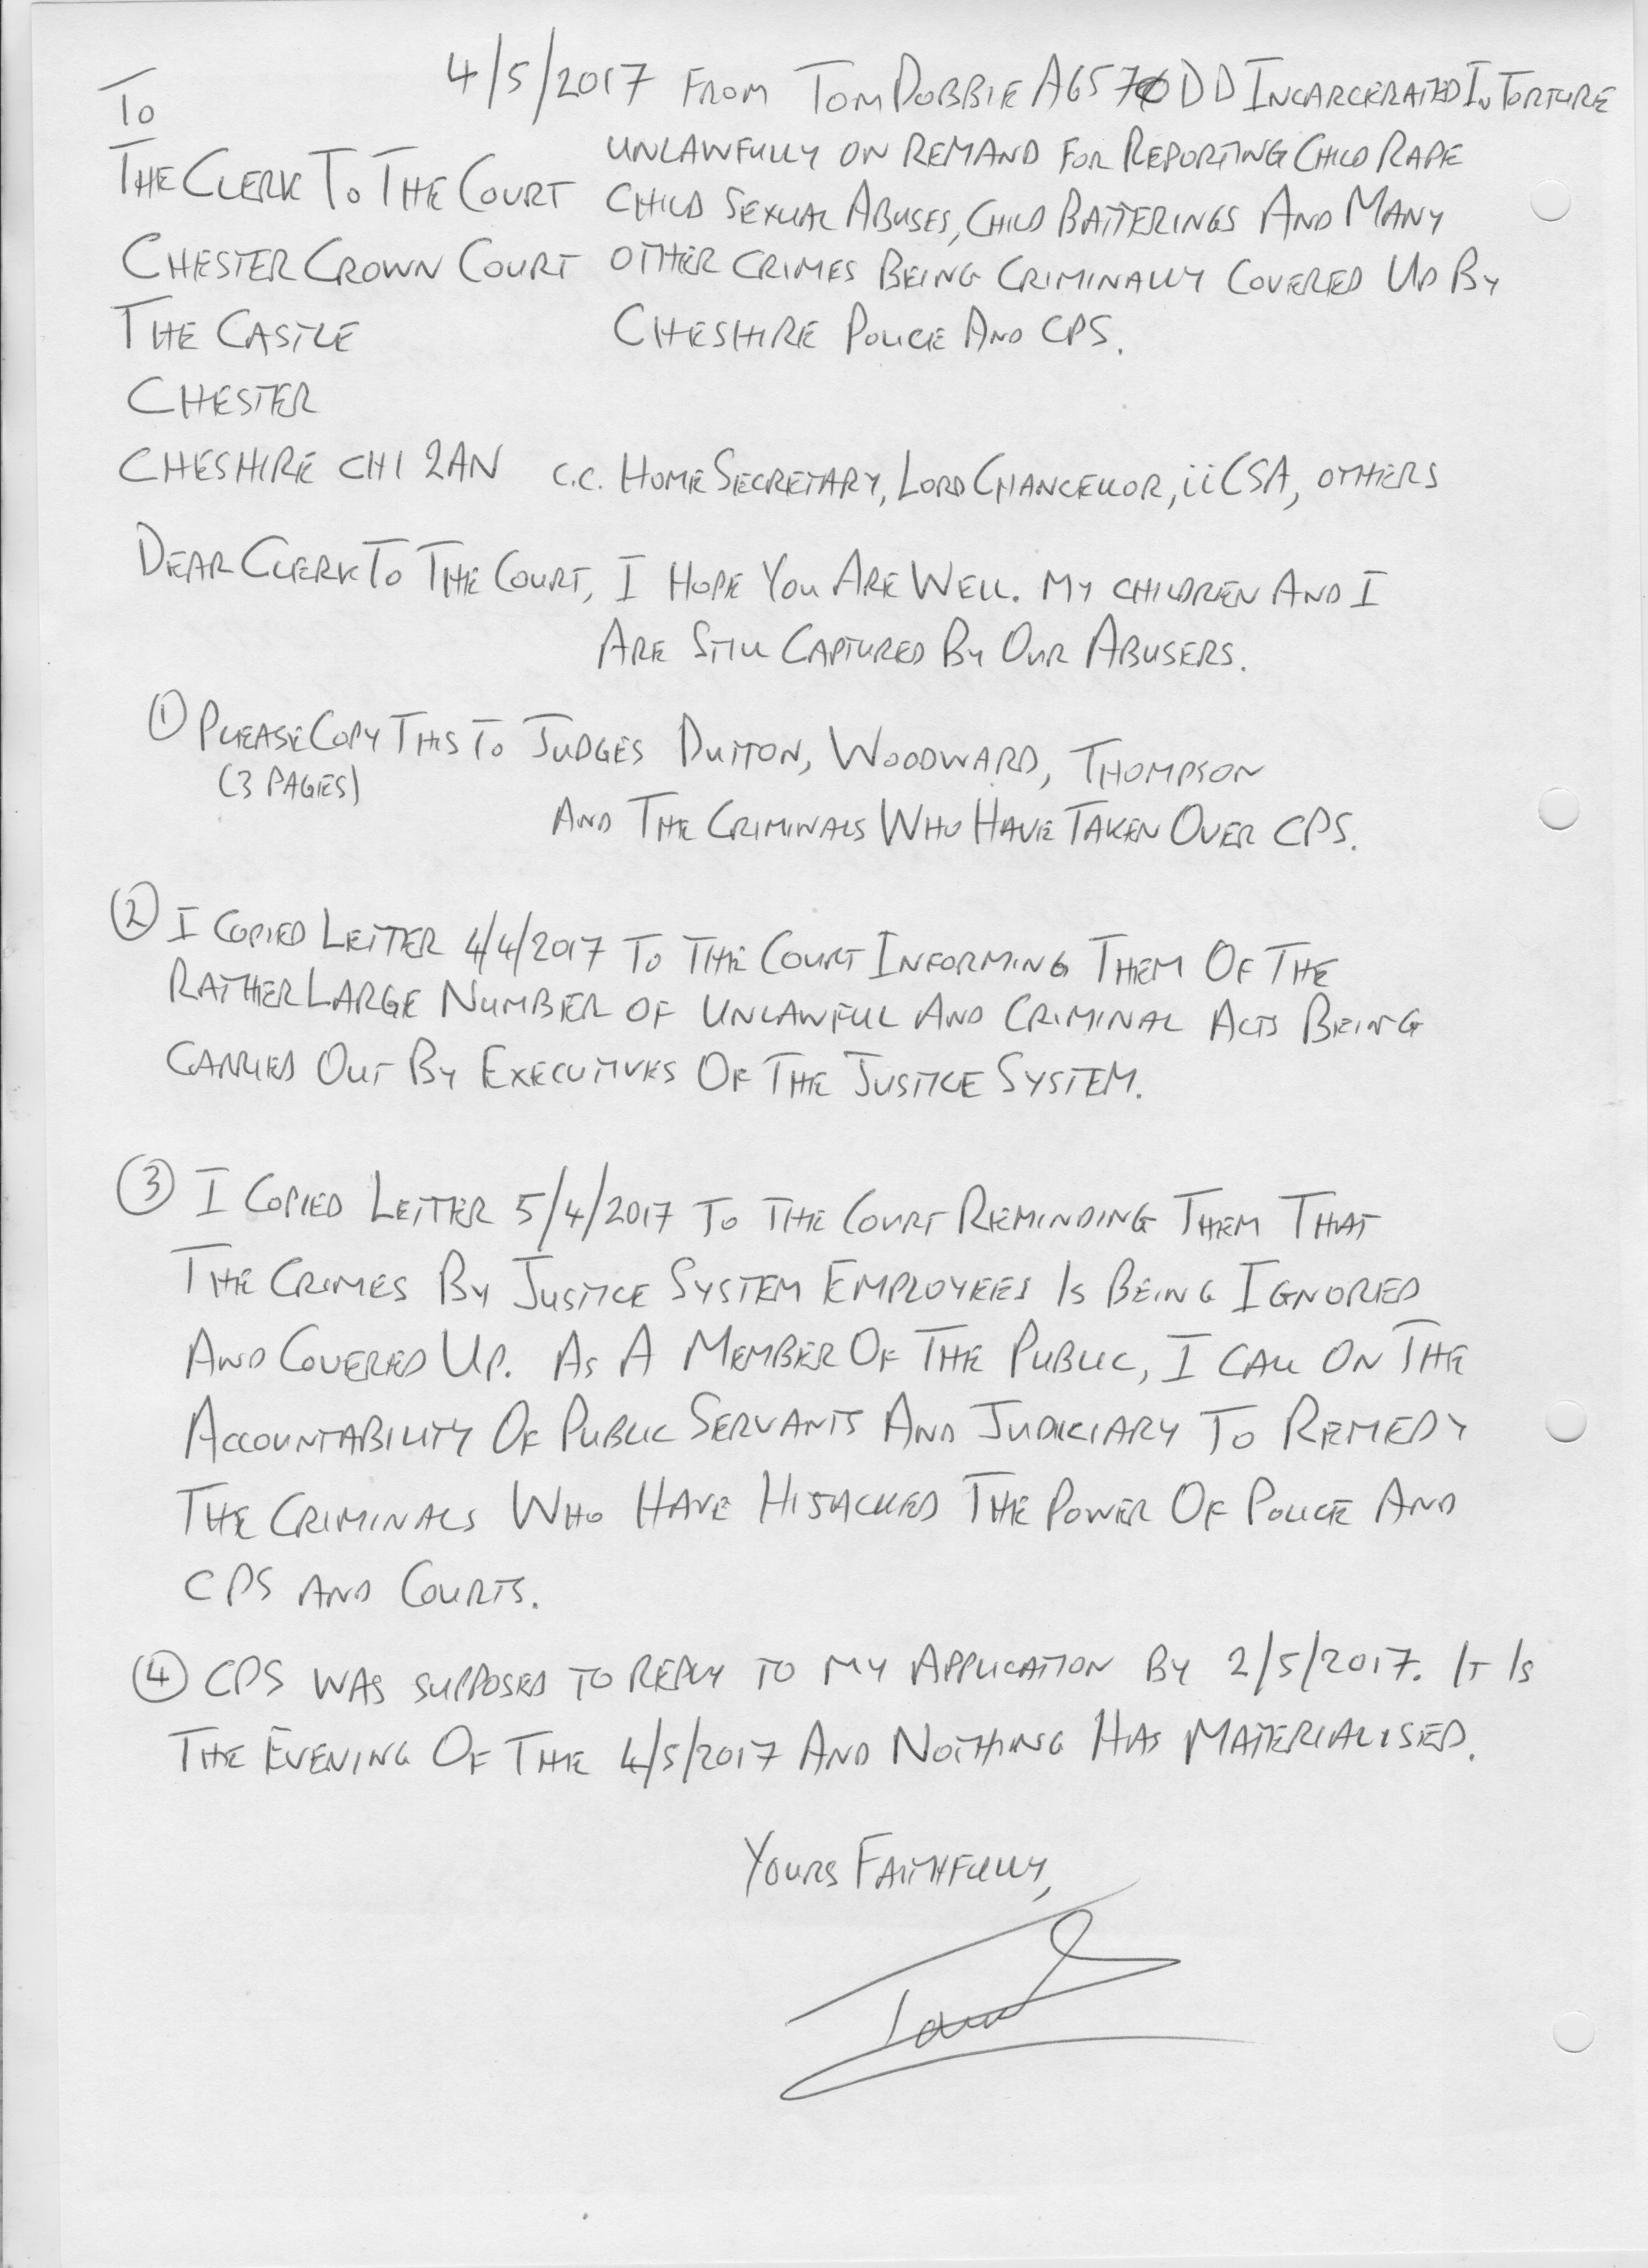 4/5/2017 FROM TOM DOBBIE A6570DD INCARCERATED IN TORTURE
UNLAWFULLY ON REMAND FOR REPORTING CHILD RAPE
CHILD SEXUAL ABUSES, CHILD BATTERINGS AND MANY
OTHER CRIMES BEING CRIMINALLY COVERED UP BY
CHESHIRE POLICE AND CPS.
TO
THE CLERK TO THE COURT
CHESTER CROWN COURT
THE CASTLE
CHESTER
CHESHIRE CH1 2AN
C.C. HOME SECRETARY, LORD CHANCELLOR, iiCSA, OTHERS
DEAR CLERK TO THE COURT, I HOPE YOU ARE WELL. MY CHILDREN AND I
ARE STILL CAPTURED BY OUR ABUSERS.
① PLEASE COPY THIS TO JUDGES DUTTON, WOODWARD, THOMPSON
(3 PAGES)
AND THE CRIMINALS WHO HAVE TAKEN OVER CPS.
② I COPIED LETTER 4/4/2017 TO THE COURT INFORMING THEM OF THE
RATHER LARGE NUMBER OF UNLAWFUL AND CRIMINAL ACTS BEING
CARRIED OUT BY EXECUTIVES OF THE JUSTICE SYSTEM.
③ I COPIED LETTER 5/4/2017 TO THE COURT REMINDING THEM THAT
THE CRIMES BY JUSTICE SYSTEM EMPLOYEES IS BEING IGNORED
AND COVERED UP. AS A MEMBER OF THE PUBLIC, I CALL ON THE
ACCOUNTABILITY OF PUBLIC SERVANTS AND JUDICIARY TO REMEDY
THE CRIMINALS WHO HAVE HIJACKED THE POWER OF POLICE AND
CPS AND COURTS.
④ CPS WAS SUPPOSED TO REPLY TO MY APPLICATION BY 2/5/2017. IT IS
THE EVENING OF THE 4/5/2017 AND NOTHING HAS MATERIALISED.
YOURS FAITHFULLY,